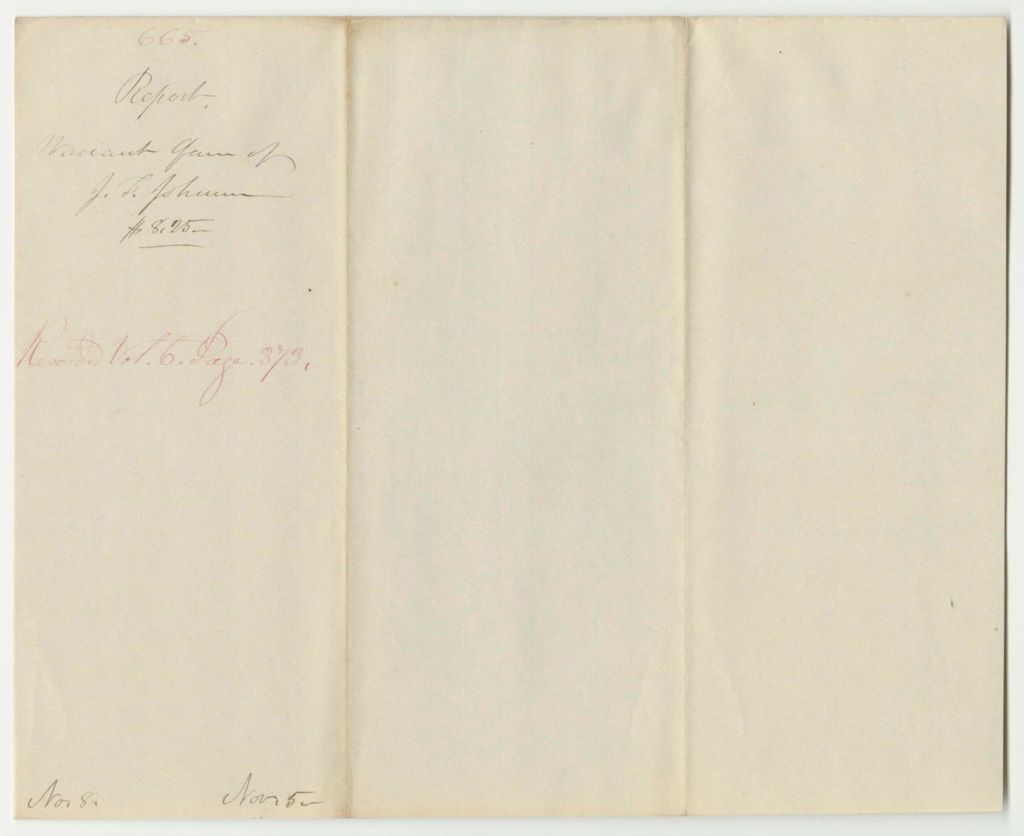 665.
Report.
Warrant favr of
J. F. Johnson
$8.25
Recorded Vol. 6. Page. 373.
No. 8.
Nov. 5